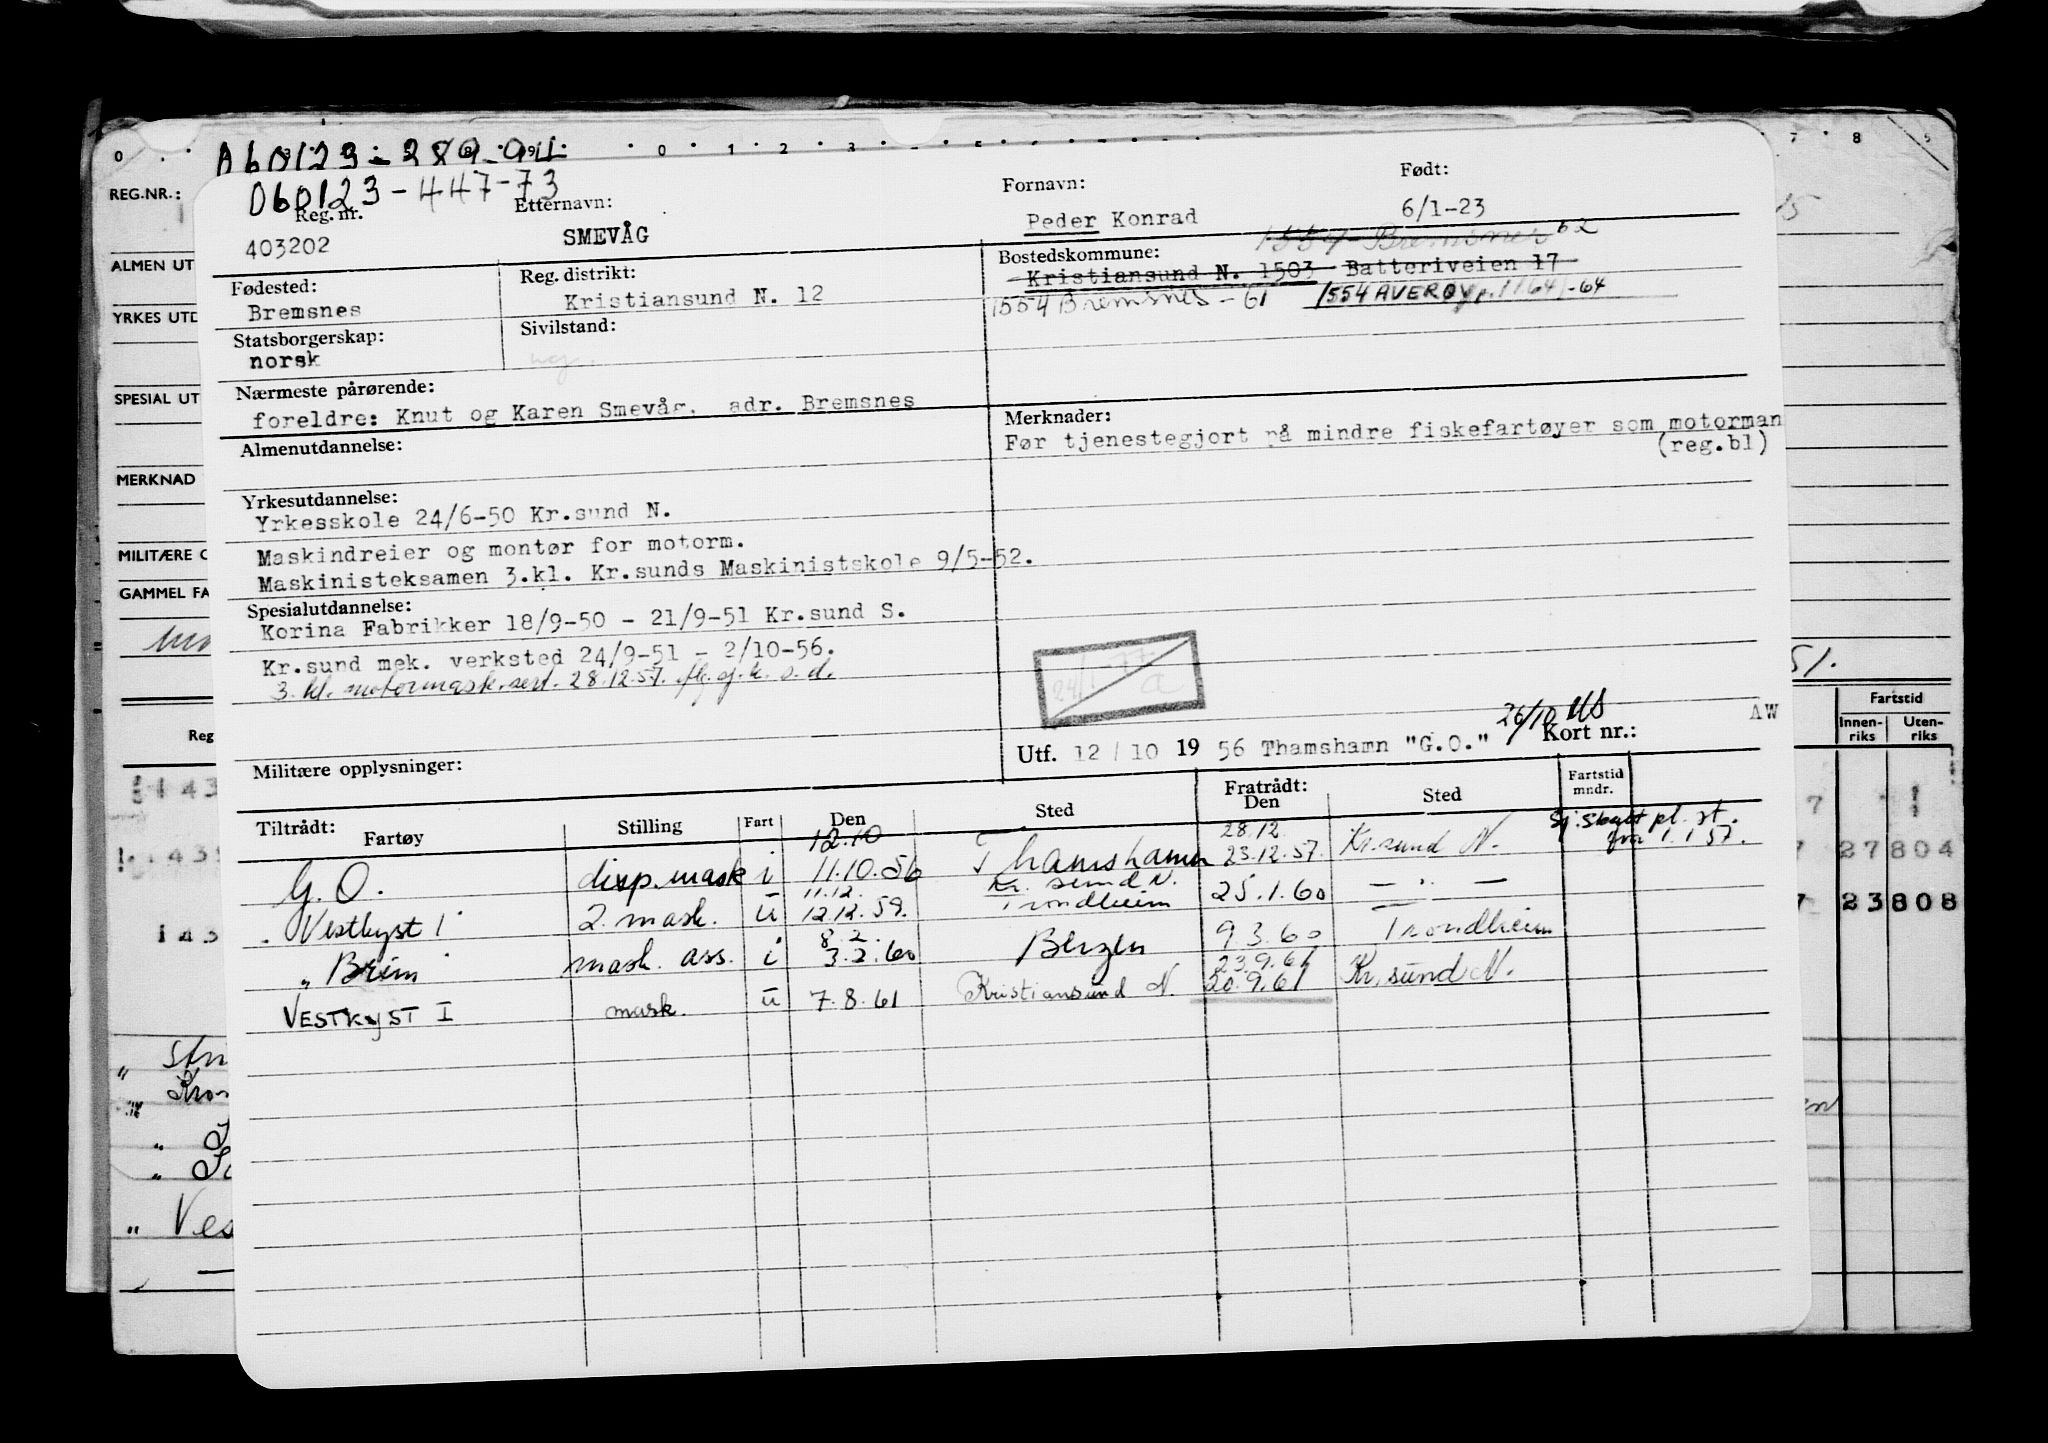 060123-289-94
060123-447-73
REG.NR.:
Reg. nr. Etternavn: Fornavn: Født:
403202 SMEVÅG Peder Konrad 6/1-23
ALMEN UT
Fødested: Reg. distrikt: Bostedskommune: 1554 Bremsnes 62
Bremsnes Kristiansund N. 12 Kristiansund N. 1503 Batteriveien 17
1554 Bremsnes - 61 1554 AVERØY p. 1/1 64 -64
YRKES UTD
Statsborgerskap: Sivilstand:
norsk ug.
SPESIAL UT
Nærmeste pårørende:
foreldre: Knut og Karen Smevåg, adr. Bremsnes
Merknader:
Før tjenestegjort på mindre fiskefartøyer som motorman
(reg.bl)
Almenutdannelse:
MERKNAD
Yrkesutdannelse:
Yrkesskole 24/6-50 Kr.sund N.
Maskindreier og montør for motorm.
MILITÆRE O
Maskinisteksamen 3.kl. Kr.sunds Maskinistskole 9/5-52.
GAMMEL FA
Spesialutdannelse:
Korina Fabrikker 18/9-50 - 21/9-51 Kr.sund S.
Kr.sund mek. verksted 24/9-51 - 2/10-56.
3. kl. motormask.sert. 28.12.57. flg. sj.k. s.d.
24/1-77
a
51.
Fartstid
Innen-riks Uten-riks
Reg
26/10 US AW
Utf. 12/10 1956 Thamshamn "G.O." Kort nr.:
Militære opplysninger:
Tiltrådt: Fratrådt:
Fartøy Stilling Fart Den Sted Den Sted Fartstid mndr.
G.O. disp. mask i 12.10 11.10.56 Thamshamn 28.12. 23.12.57. Kr.sund N. Sj. skatt pl. st. fra 1.1.57.
" Vestkyst I 2. mask. u 11.12. 12.12.59. Kr. sund N. Trondheim 25.1.60 — " —
" Brim mask. ass. i 8.2. 3.2.60 Bergen 9.3.60 Trondheim
VESTKYST I mask. u 7.8.61 Kristiansund N. 23.9.61 20.9.61 Kr.sund N.
27804
23808
" Ves